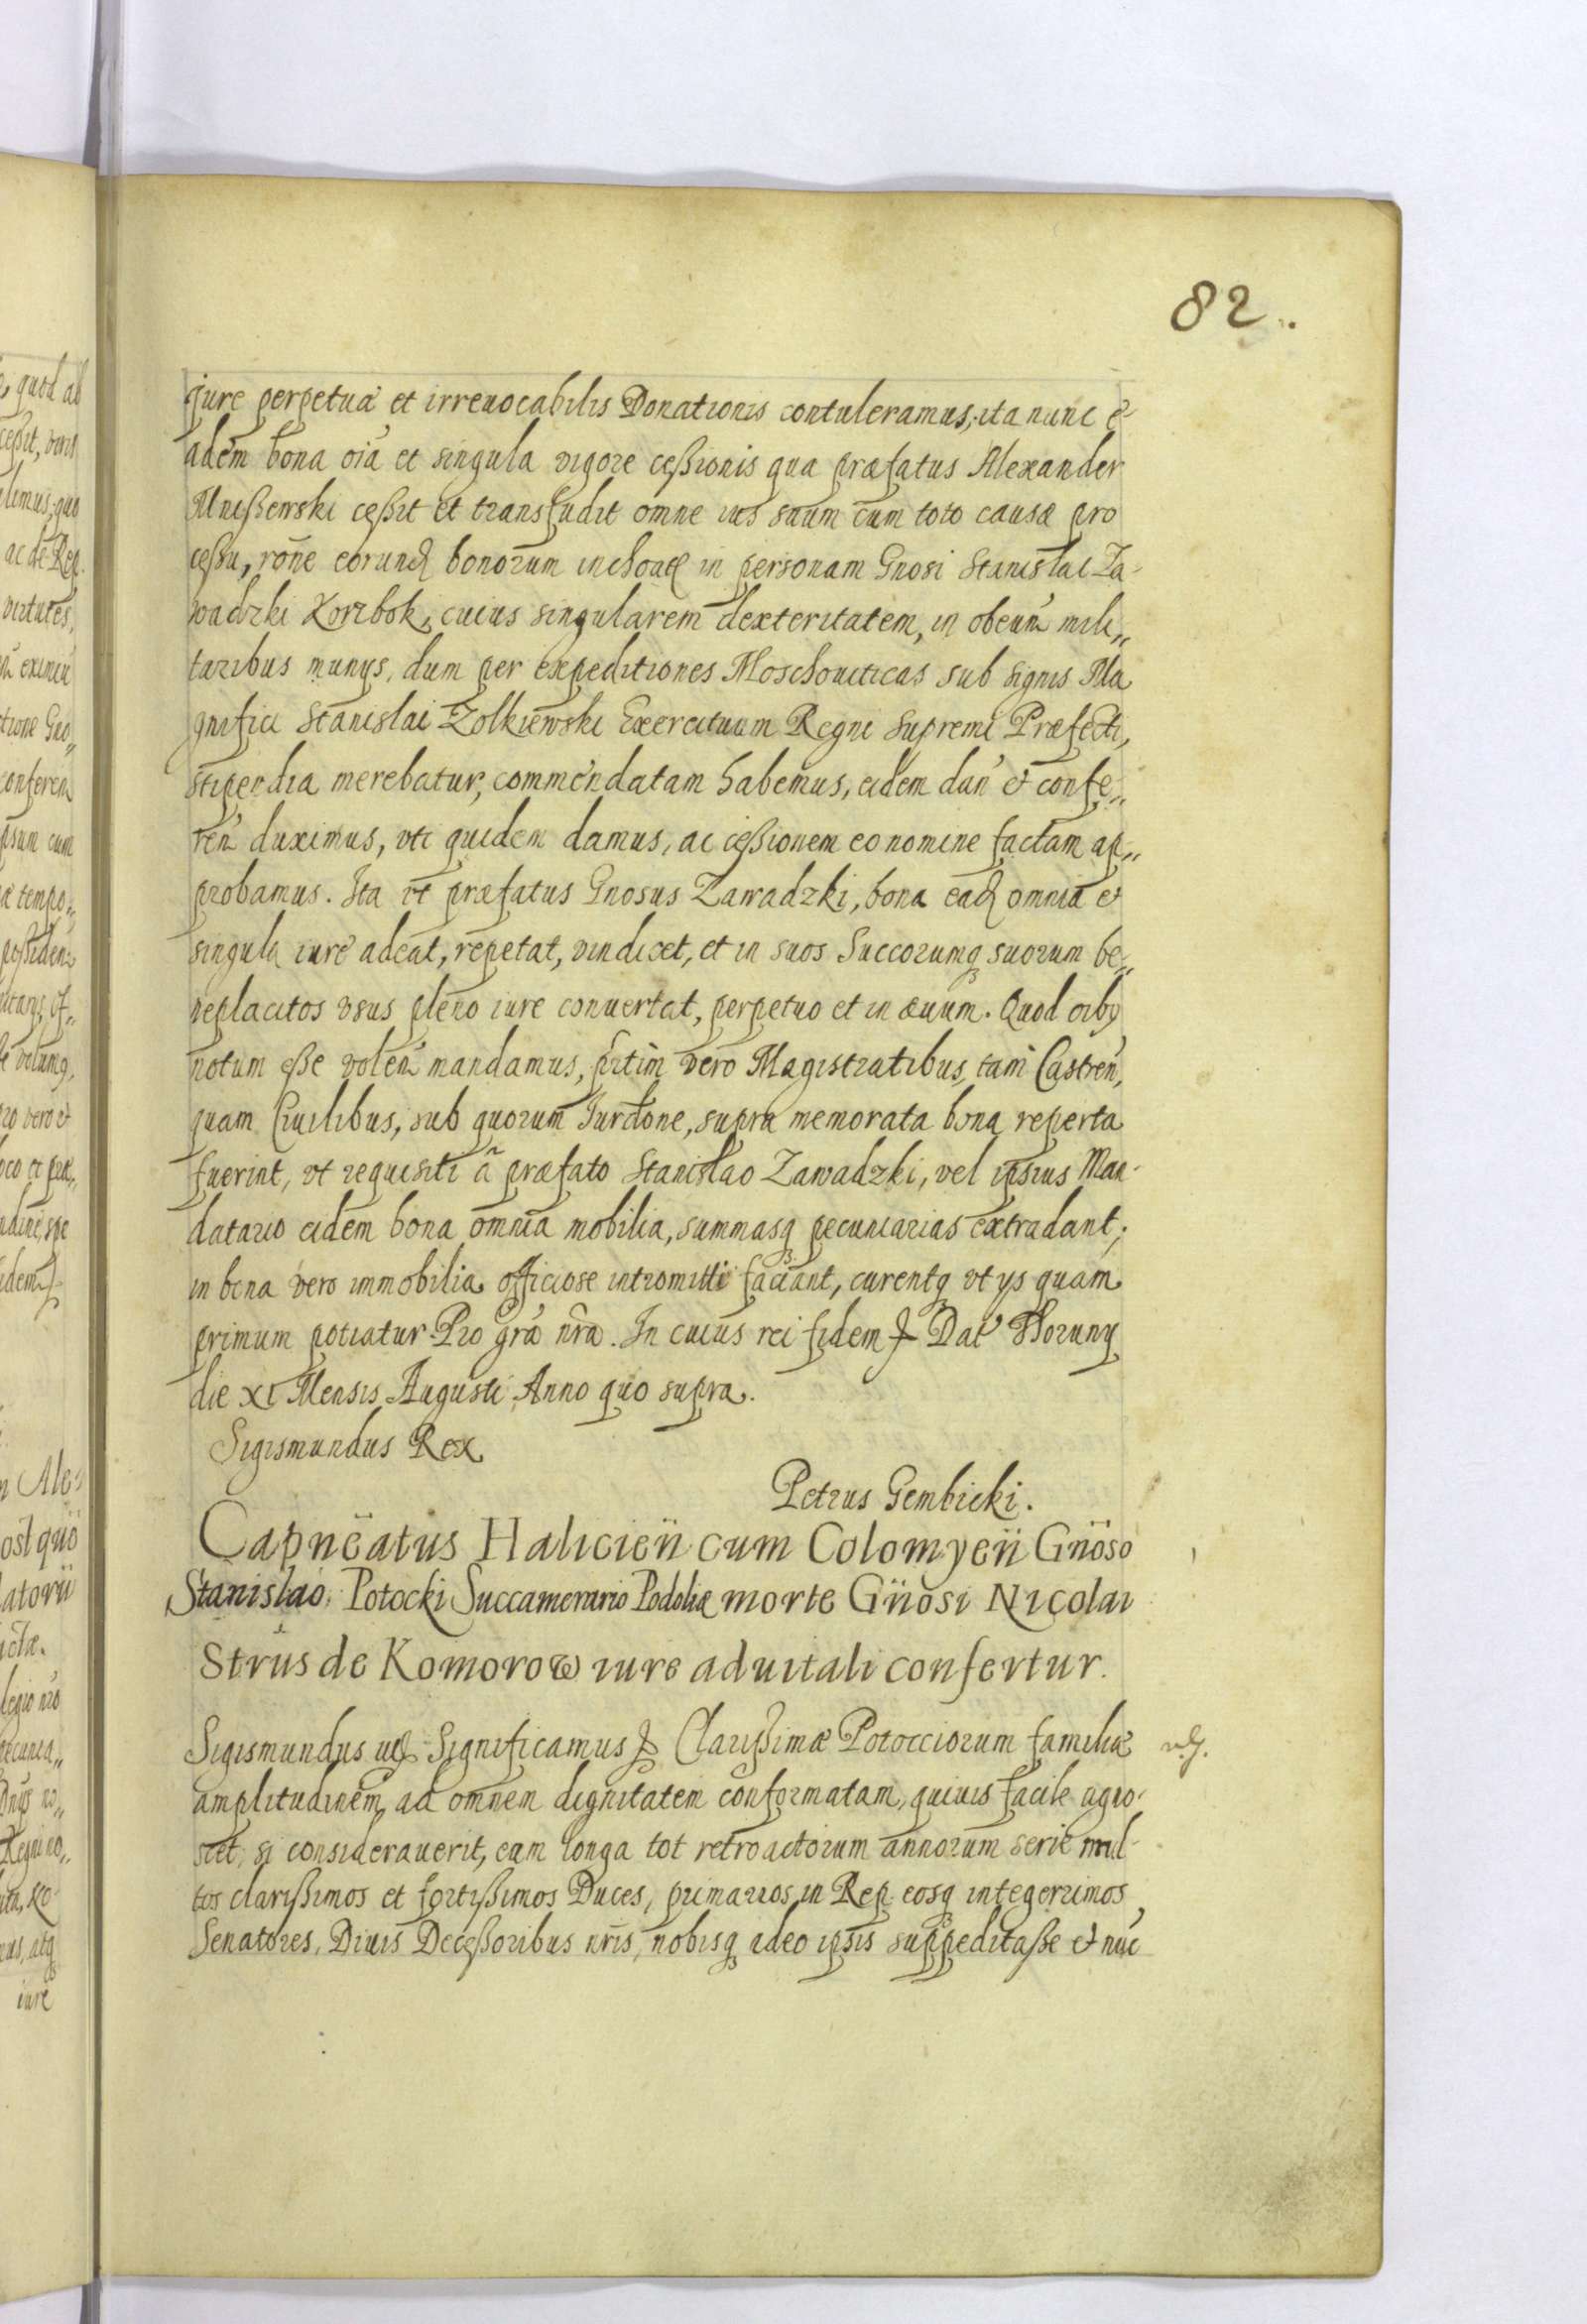 82.
jure perpetuâ et irreuocabilis Donationis contuleramus, ita nunc e-
adem bona oĩa et singula vigore ceßionis qua præfatus Alexander
Mnißewski ceßit et transfudit omne ius suum cum toto causæ pro
ceßu, rõne eorund bonorum inchoatæ in personam Gnosi Stanislai Za-
wadzki Korzbok, cuius singularem dexteritatem, in obeuñ mili„
taribus munÿs, dum per expeditiones Moschouiticas sub signis Ma
gnifici Stanislai Zolkiewski Exercituum Regni Supremi Præfecti,
stipendia merebatur, commendatam habemus, eidem dañ et confe„
reñ duximus, vti quidem damus, ac ceßionem eo nomine factam ap„
probamus. Ita vt præfatus Gnosus Zawadzki, bona ead omnia et
singula iure adeat, repetat, vindicet, et in suos Succorumq suorum be„
neplacitos vsus pleno iure conuertat, perpetuo et in æuum. Quod oibꝫ
notum eße voleñ mandamus, p̃rtim vero Magistratibus, tam Castreñ,
quam Ciuilibus, sub quorum Iurdone, supra memorata bona reperta
fuerint, vt requisiti â præfato Stanislao Zawadzki, vel ipsius Man-
datario eidem bona omnia mobilia, summasq pecuniarias extradant;
in bona vero immobilia officiose intromitti faciant, curentq vt ÿs quam
primum potiatur. Pro grã nrã. In cuius rei fidem ꝑ Dat Thoruny
die XI Mensis Augusti Anno quo supra.
Sigismundus Rex
Petrus Gembicki.
Capnëatus Halicieñ cum Colomyeñ Gñoso
Stanislao Potocki Succamerario Podoliæ morte Gñosi Nicolai
Strus de Komorow iure aduitali confertur.
Sigismundus Significamus ꝑ Clarißimæ Potocciorum familiæ
amplitudinem ad omnem dignitatem conformatam, quiuis facile agno-
scet, si considerauerit, eam longa tot retroactorum annorum serie mul-
tos clarißimos et fortißimos Duces, primarios in Rep eosq integerrimos
Senatores, Diuis Deceßoribus nris, nobisq adeo ipsis suppeditaße et nuc